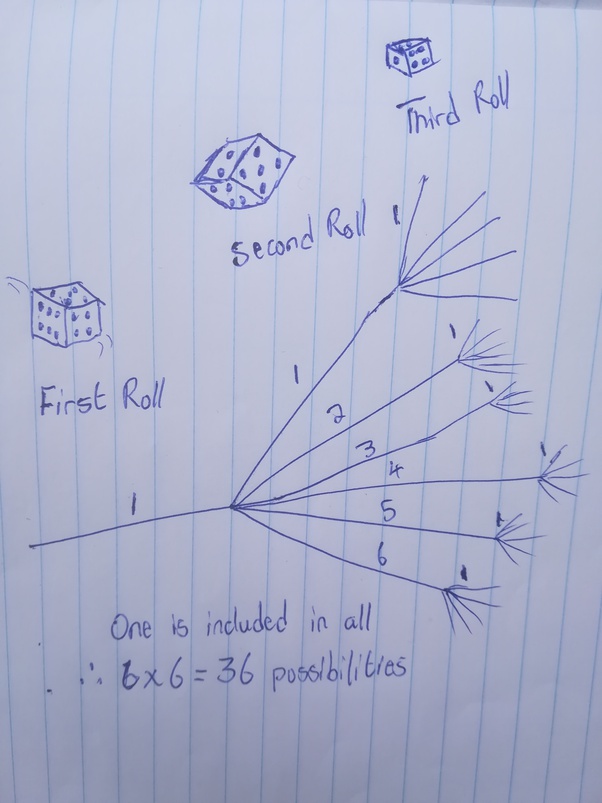 Third Roll
Second Roll
First Roll
1
1
1
1
1
2
3
4
1
5
1
6
1
1
One is included in all
∴ 6x6 = 36 possibilities